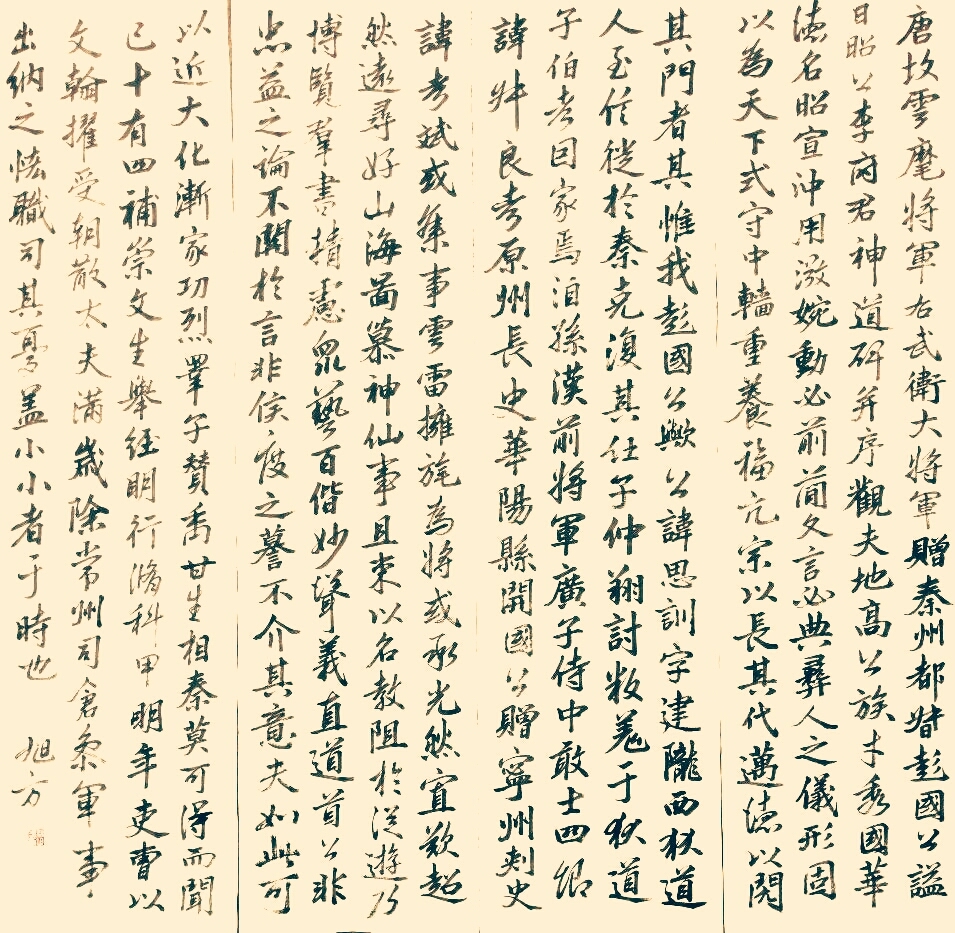 唐故雲麾將軍右武衛大將軍贈秦州都督彭國公謚
曰昭公李府君神道碑并序觀夫地高公族才秀國華
德名昭宣沖用微婉動必前聞文言必典彝人之儀形固
以為天下式守中轖重養福元宗以長其代邁德以閱
其門者其惟我彭國公歟公諱思訓字建隴西狄道
人至信徙於秦克復其任子仲翔討叛羌于狄道
子伯考因家焉洎孫漢前將軍廣子侍中敢士四郎
諱 良考原州長史華陽縣開國公贈寧州刺史
諱考斌或集事雲雷擁旄為將或承光然宜歎超
然遠尋好山海圖慕神仙事且束以名教阻於從遊乃
博覽羣書精慮眾藝百偕妙聲義直道首公非
忠益之論不關於言非侯度之謩不介其意夫如此可
以近大化漸家功烈舉子贊禹甘生相秦莫可得而聞
已十有四補崇文生舉經明行脩科甲明年吏曹以
文翰擢受朝散太夫滿歲除常州司倉參軍事
出納之恡職司其憂蓋小小者于時也 旭方